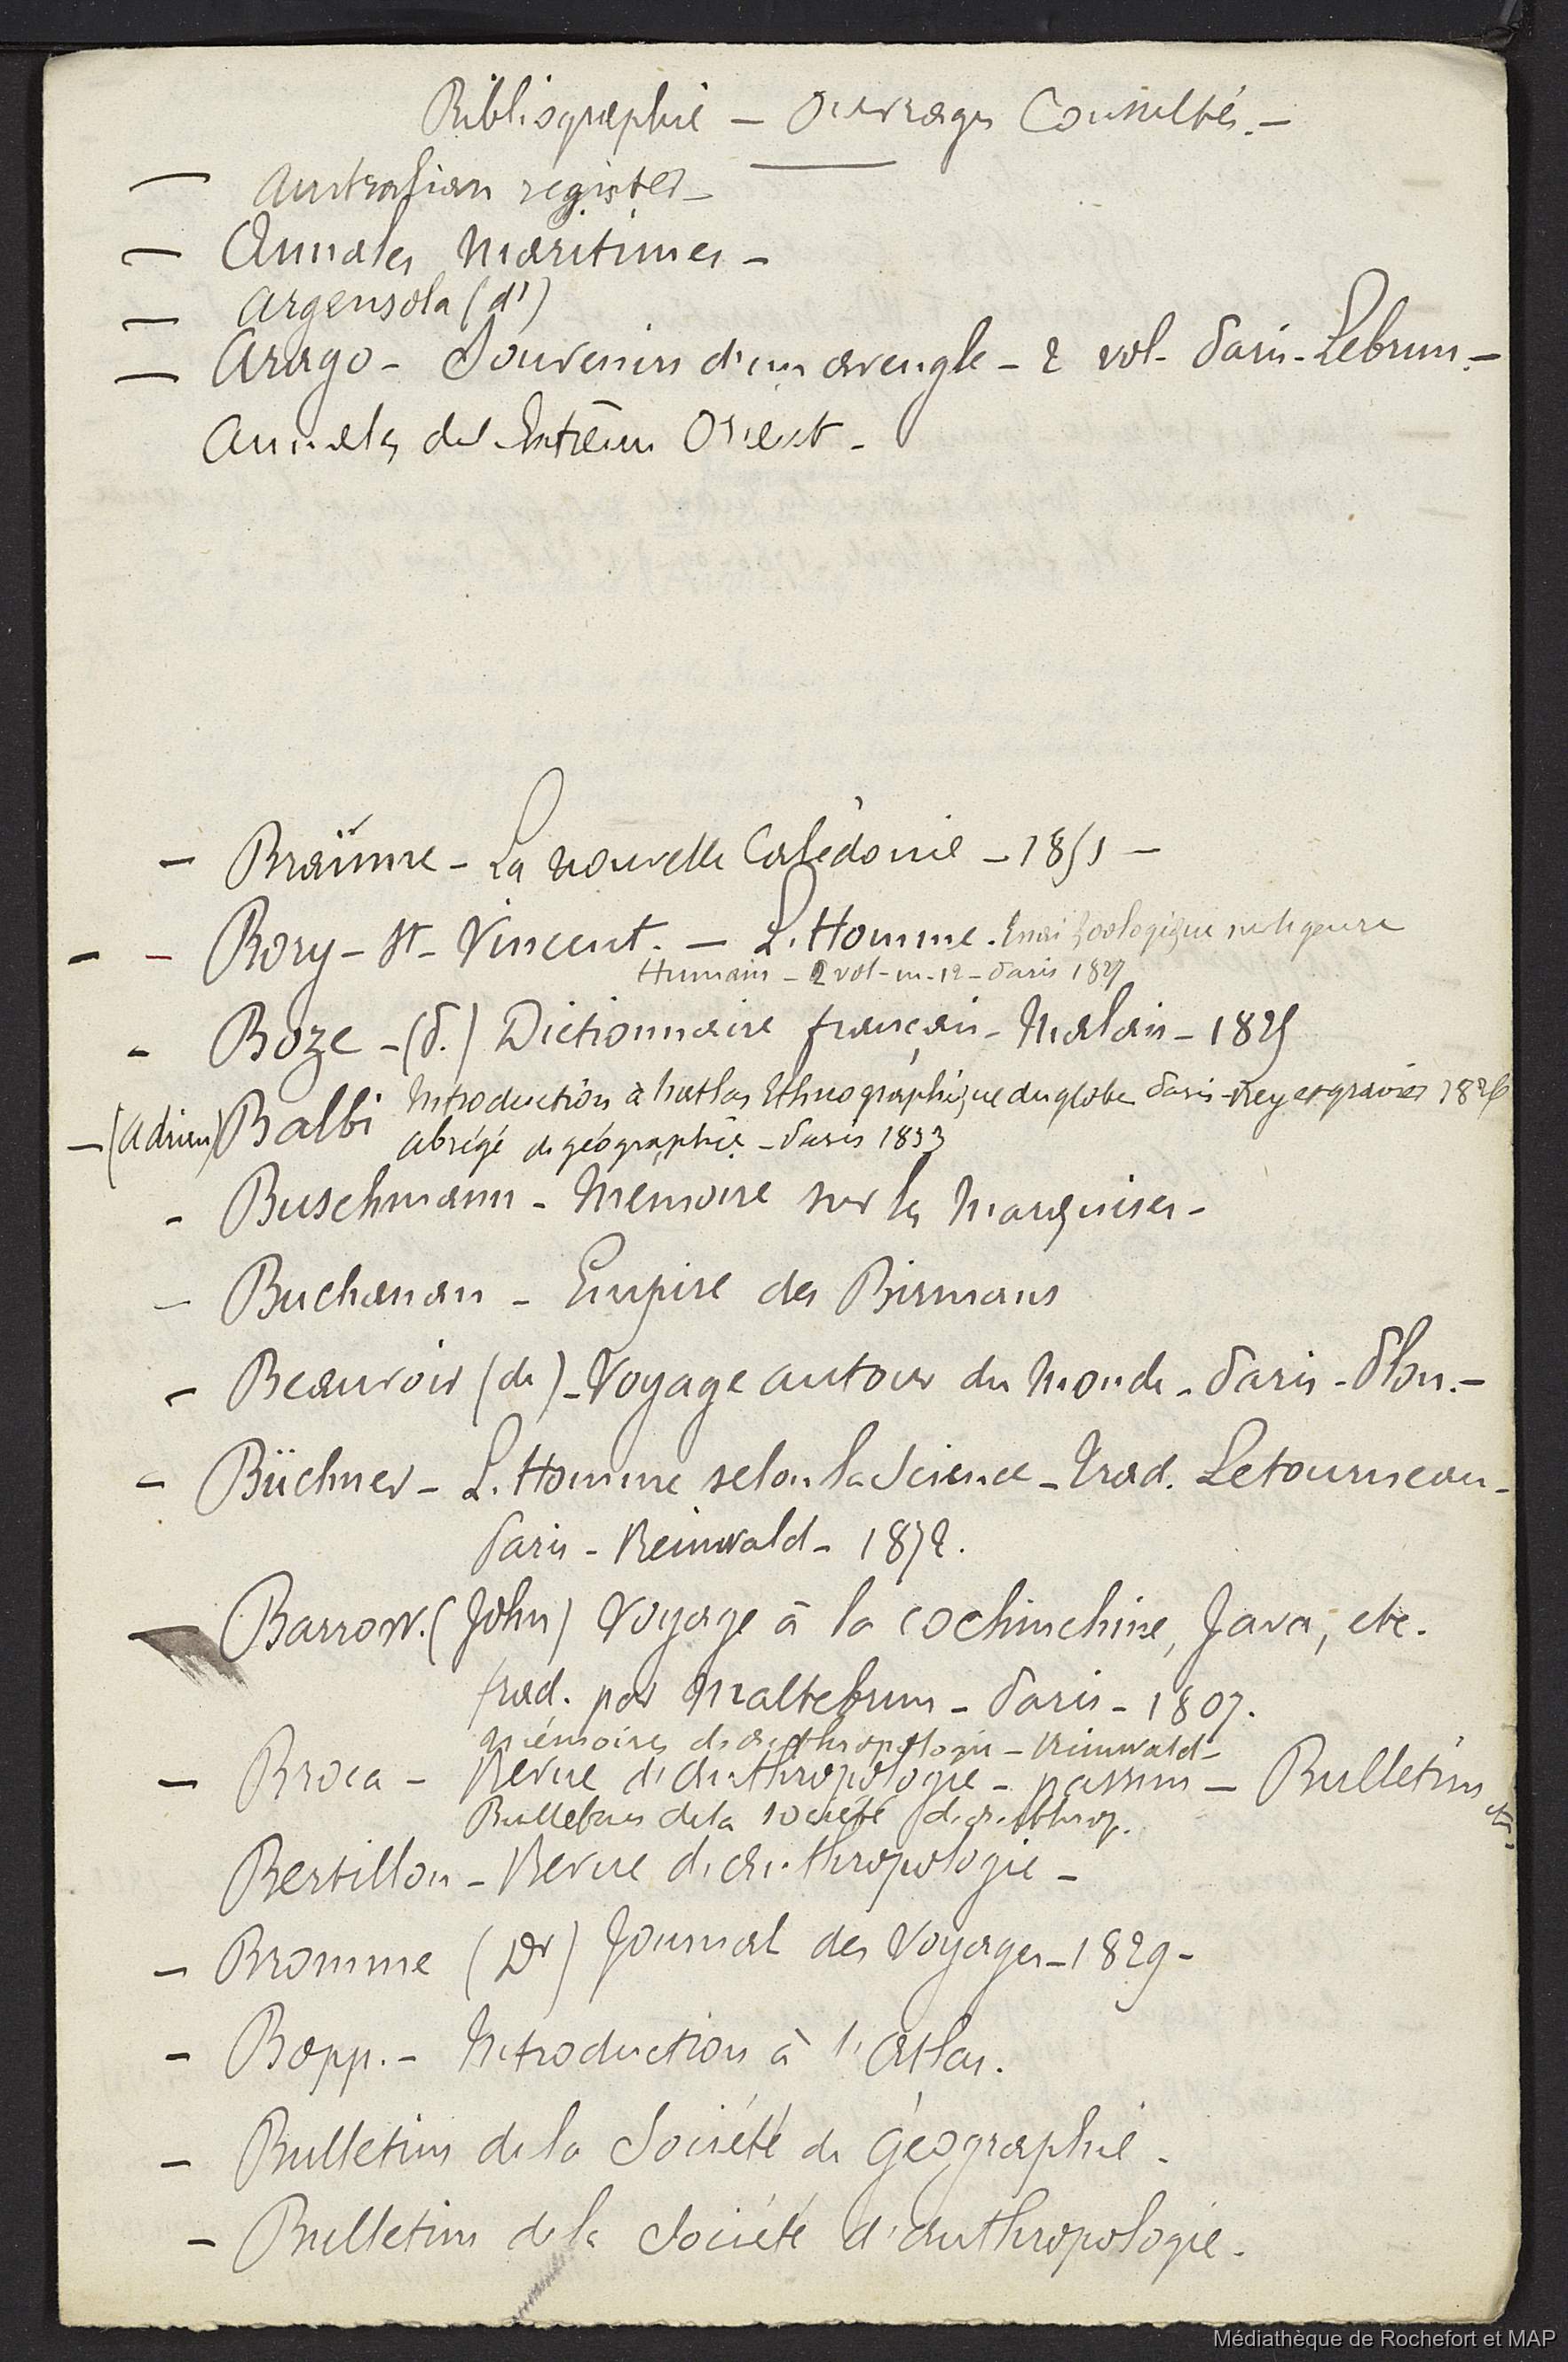 Bibliographie — Ouvrages Consultés. —
— Australian register —
— Annales Maritimes —
— Argensola (d')
— Arago — Souvenirs d'un aveugle — 2 vol — Paris — Lebrun. —
Annales de l'Extrême Orient —
— Braïnne — La nouvelle Calédonie — 1851 —
— — Bory — St — Vincent. — L'Homme. Essai zoologique sur le genre
Humain — 2 vol — in-12 — Paris 1827
— Boze — (P.) Dictionnaire français — Malais — 1825
Introduction à l'atlas Ethnographique du globe Paris — Rey et gravier 1826
— (Adrien) Balbi
abrégé de géographie — Paris 1833
— Buschmann — Mémoire sur les Marquises —
— Buchanan — Empire des Birmans
— Beauvoir (de) — Voyage autour du Monde — Paris — Plon. —
— Büchner — L'Homme selon la Science — Trad. Letourneau —
Paris — Reinwald — 1872.
— Barrow. (John) Voyage à la cochinchine, Java, etc.
trad. par Maltebrun — Paris — 1807.
Mémoires d'anthropologie — Reinwald —
— Broca — Revue d'anthropologie — passim — Bulletins etc.
Bulletins de la société d'anthrop.
Bertillon — Revue d'anthropologie —
— Bromme (Dr) Journal des Voyages — 1829 —
— Bopp. — Introduction à l'Atlas.
— Bulletins de la Société de Géographie.
— Bulletins de la Société d'anthropologie.
Médiathèque de Rochefort et MAP